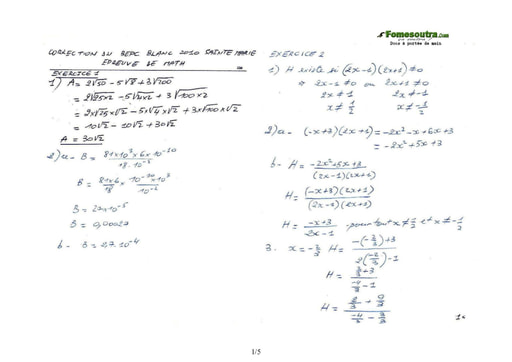 Fomesoutra.com
Docs à portée de main
CORRECTION DU BEPC BLANC 2010 SAINTE MARIE
EPREUVE DE MATH
EXERCICE 1
1) A = 2√50 - 5√8 + 3√200
= 2√25×2 - 5√4×2 + 3√100×2
= 2×√25×√2 - 5×√4×√2 + 3×√100×√2
= 10√2 - 10√2 + 30√2
A = 30√2
2) a- B =
B =
B = 27×10⁻⁵
B = 0,00027
b- B = 2,7.10⁻⁴
EXERCICE 2
1) H existe si (2x-1)(2x+1) ≠ 0
2x-1 ≠ 0 ou 2x+1 ≠ 0
2x ≠ 1 2x ≠ -1
x ≠ 1/2 x ≠ -1/2
2) a- (-x+3)(2x+1) = -2x² - x + 6x + 3
= -2x² + 5x + 3
b- H = (-2x²+5x+3)/((2x-1)(2x+1))
H = ((-x+3)(2x+1))/((2x-1)(2x+1))
H = (-x+3)/(2x-1) pour tout x ≠ 1/2 et x ≠ -1/2
3. x = -2/3 H = (-(-2/3)+3)/(2(-2/3)-1)
H = (2/3+3)/(-4/3-1)
H = (2/3+9/3)/(-4/3-3/3)
1/5